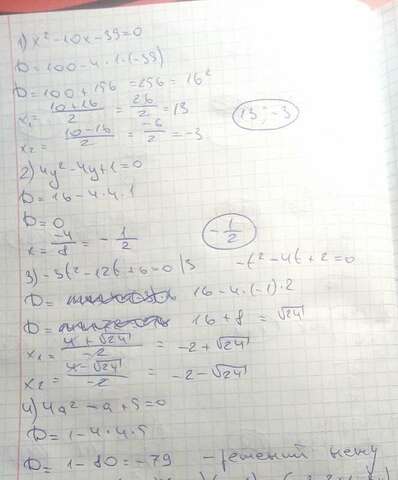 1) x² - 10x - 39 = 0
D = 100 - 4 · 1 · (-39)
D = 100 + 156 = 256 = 16²
x₁ = (10+16)/2 = 26/2 = 13
13; -3
x₂ = (10-16)/2 = -6/2 = -3
2) 4y² - 4y + 1 = 0
D = 16 - 4 · 4 · 1
D = 0
x = -4/8 = -1/2
-1/2
3) -3t² - 12t + 6 = 0 |3 -t² - 4t + 2 = 0
D = 16 - 4 · (-1) · 2
D = 16 + 8 = √24
x₁ = (4+√24)/-2 = -2 + √24
x₂ = (4-√24)/-2 = -2 - √24
4) 4a² - a + 5 = 0
D = 1 - 4 · 4 · 5
D = 1 - 80 = -79 - решений нету